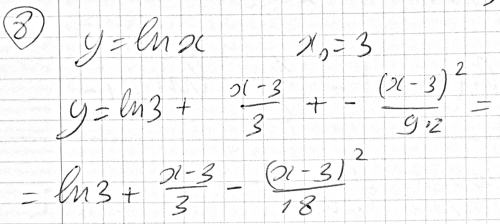 8
y = ln x    x₀ = 3
y = ln3 + (x-3)/3 + - (x-3)²/(9·2) =
= ln3 + (x-3)/3 - (x-3)²/18